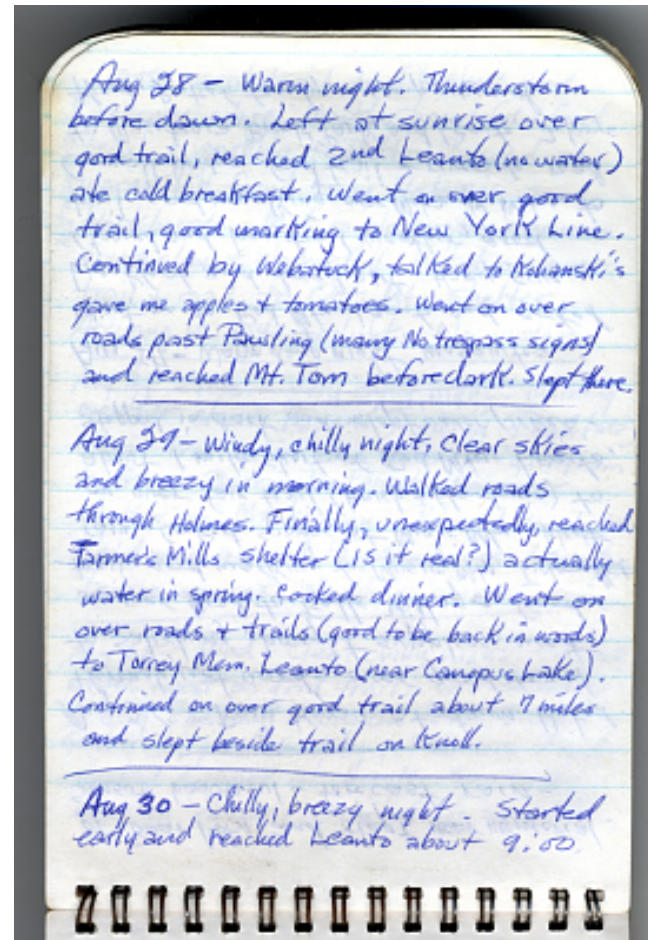 Aug 28 – Warm night. Thunderstorm
before dawn. Left at sunrise over
good trail, reached 2nd Leanto (no water)
ate cold breakfast. Went on over good
trail, good marking to New York Line.
Continued by Webatuck, talked to Kohanski's
gave me apples + tomatoes. Went on over
roads past Pawling (many No trepass signs)
and reached Mt. Tom before dark. Slept there.
Aug 29 – Windy, chilly night. Clear skies
and breezy in morning. Walked roads
through Holmes. Finally, unexpectedly, reached
Farmer's Mills shelter (is it real?) actually
water in spring. Cooked dinner. Went on
over roads + trails (good to be back in woods)
to Torrey Mem. Leanto (near Canopus Lake).
Continued on over good trail about 7 miles
and slept beside trail on Knoll.
Aug 30 – Chilly, breezy night. Started
early and reached Leanto about 9:00